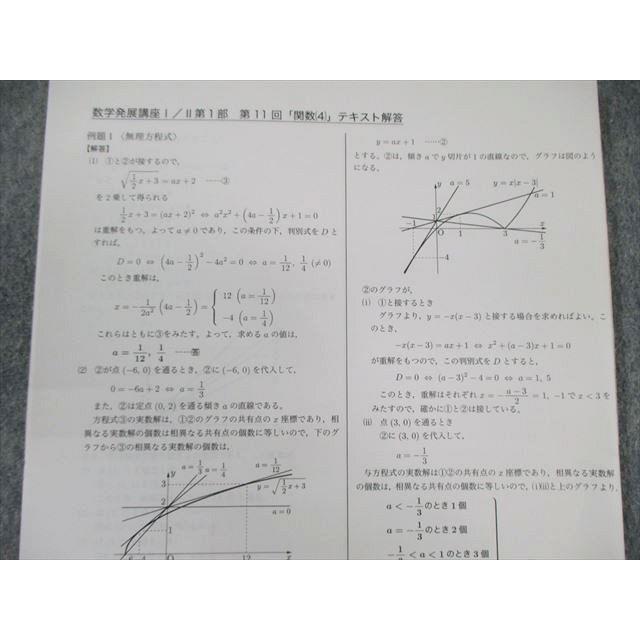 数学発展講座Ⅰ／Ⅱ第1部 第11回「関数(4)」テキスト解答
例題1〈無理方程式〉
【解答】
(1) ①と②が接するので,
√(1/2 x+3) = ax+2 ……③
を2乗して得られる
1/2 x+3 = (ax+2)² ⇔ a²x² + (4a − 1/2)x + 1 = 0
は重解をもつ。よって a≠0 であり, この条件の下, 判別式を D と
すれば,
D = 0 ⇔ (4a − 1/2)² − 4a² = 0 ⇔ a = 1/12, 1/4 (≠0)
このとき重解は,
x = −1/(2a²) (4a − 1/2) = { 12 (a = 1/12)
−4 (a = 1/4)
これらはともに③をみたす。よって, 求める a の値は,
a = 1/12, 1/4 ……答
(2) ②が点(−6, 0)を通るとき, ②に(−6, 0)を代入して,
0 = −6a+2 ⇔ a = 1/3
また, ②は定点(0, 2)を通る傾き a の直線である。
方程式③の実数解は, ①②のグラフの共有点の x 座標であり, 相
異なる実数解の個数は相異なる共有点の個数に等しいので, 下のグ
ラフから③の相異なる実数解の個数は,
y
a = 1/3
a = 1/4
a = 1/12
y = √(1/2 x+3)
2
a = 0
1
−6
−4
O
12
x
y = ax+1 ……②
とする。②は, 傾き a で y 切片が1の直線なので, グラフは図のよう
になる。
y
a = 5
y = x|x−3|
a = 1
1
−1
O
1
3
x
a = −1/3
−4
②のグラフが,
(i) ①と接するとき
グラフより, y = −x(x−3) と接する場合を求めればよい。こ
のとき,
−x(x−3) = ax+1 ⇔ x² + (a−3)x + 1 = 0
が重解をもつので, この判別式を D とすると,
D = 0 ⇔ (a−3)² − 4 = 0 ⇔ a = 1, 5
このとき, 重解はそれぞれ x = −(a−3)/2 = 1, −1 で x<3 を
みたすので, 確かに①と②は接している。
(ii) 点(3, 0)を通るとき
②に(3, 0)を代入して,
a = −1/3
与方程式の実数解は①②の共有点の x 座標であり, 相異なる実数解
の個数は, 相異なる共有点の個数に等しいので, (i)(ii)と上のグラフより,
a < −1/3 のとき1個
a = −1/3 のとき2個
−1/3 < a < 1 のとき3個